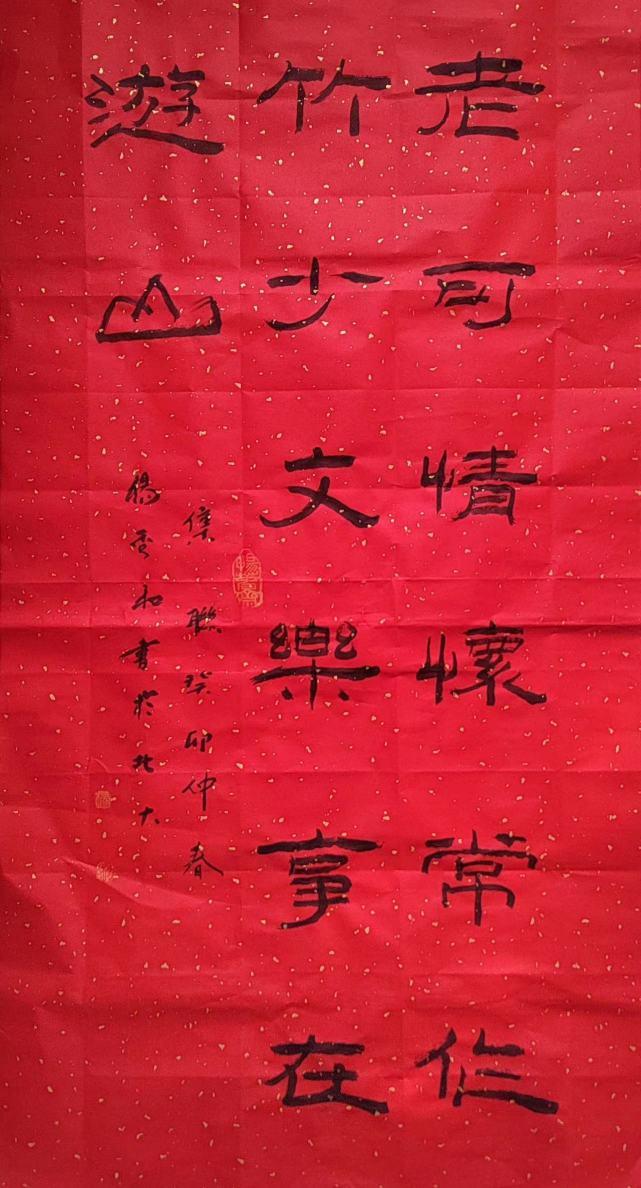 老可情懷常作
竹少文樂事在
遊山
集聯癸卯仲春
楊和書於北大